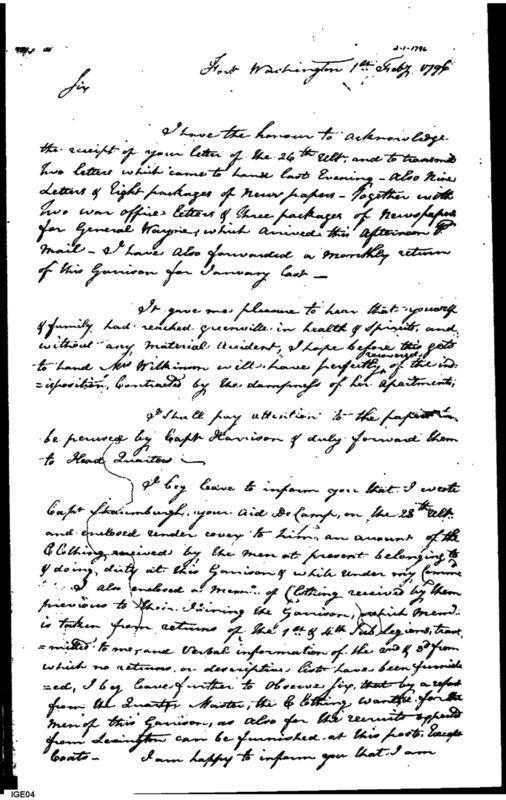 2-1-1796
Fort Washington 1st Feby 1796
Sir
I have the honour to acknowledge
the receipt of your letter of the 26th Ult. and to transmit
Two letters which came to hand last Evening - Also Nine
Letters & Eight packages of News papers - Together with
Two war office letters & Three packages of Newspapers
for General Wayne, which arrived this Afternoon
Mail - I have also forwarded a Monthly return
of this Garrison for January last -
It gave me pleasure to hear that yourself
& family had reached greenville in health & Spirits, and
without any Material Accident, I hope before this gets
recovered
to hand Mrs Wilkinson will have perfectly of the ind
=isposition, Contracted by the dampness of her Apartments,
I shall pay attention to the papers
be perused by Capt Harrison & duly forward them
to Head Quarters -
I beg leave to inform you that I wrote
Capt Shaumburgh, your Aid De Camp, on the 28th Ult.
and enclosed under cover to him, an amount of the
Clothing received by the men at present belonging to
& doing duty at this Garrison & while under my Comme
I also enclosed a Memm. of Clothing received by them
previous to their Joining the Garrison, which Memm.
is taken from returns of the 1st & 4th Sub Legions, trans
=mitted to me, and verbal information of the 2nd & 3d from
which no returns or descriptive lists have been furnish
=ed, I beg leave further to observe Sir, that by a report
from the Quarter Master, the Clothing wanted for the
men of this Garrison, as also for the recruits
from Lexington can be furnished at this post, Except
Coats - I am happy to inform you that I am
IGE04